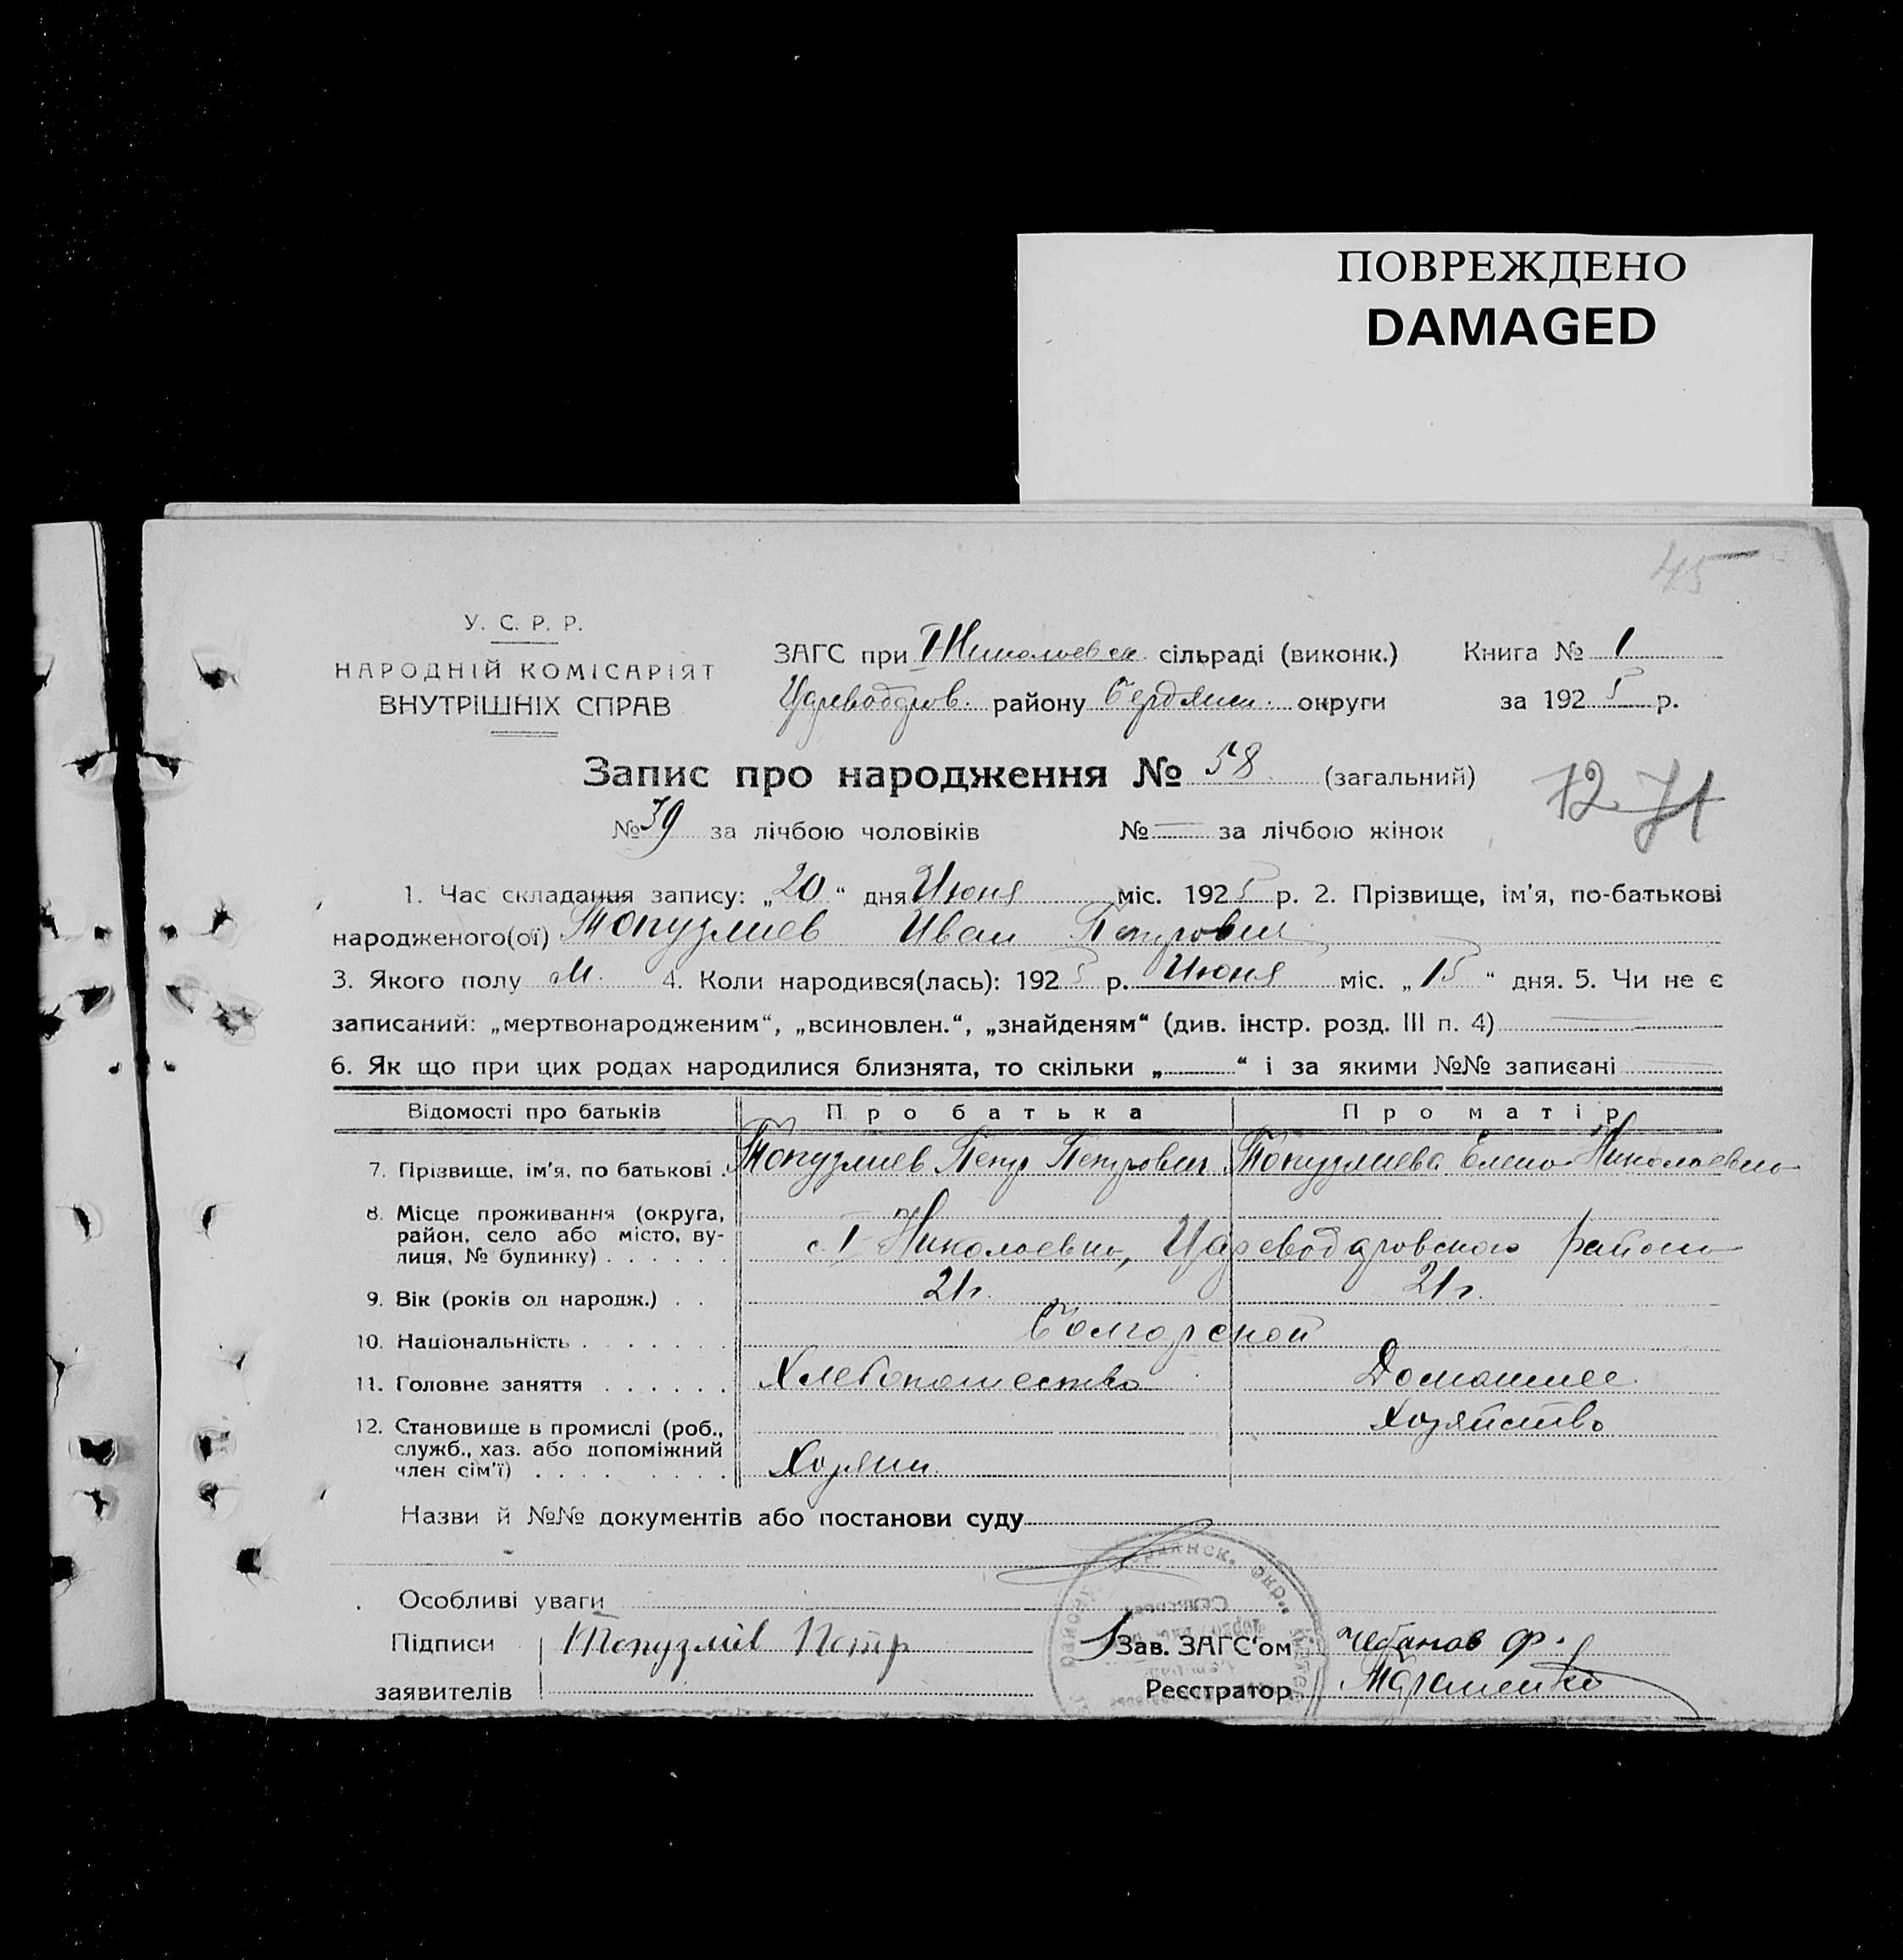 ПОВРЕЖДЕНО
DAMAGED
45
У. С. Р. Р.
НАРОДНІЙ КОМІСАРІЯТ
ВНУТРІШНІХ СПРАВ
ЗАГС при I Николаевск. сільраді (виконк.) Книга № 1
Цареводаров. району Бердянск. округи за 1925 р.
Запис про народження № 58 (загальний)
72 71
№ 39 за лічбою чоловіків № — за лічбою жінок
1. Час складання запису: „20“ дня Июня міс. 1925 р. 2. Прізвище, ім'я, по-батькові
народженого(ої) Топузлиев Иван Петрович
3. Якого полу М. 4. Коли народився(лась): 1925 р. Июня міс. „15“ дня. 5. Чи не є
записаний: „мертвонародженим“, „всиновлен.“, „знайденям“ (див. інстр. розд. III п. 4) —
6. Як що при цих родах народилися близнята, то скільки „—“ і за якими №№ записані —
Відомості про батьків Про батька Про матір
7. Прізвище, ім'я, по батькові . Топузлиев Петр Петрович Топузлиева Елена Николаевна
8. Місце проживання (округа,
район, село або місто, ву-
лиця, № будинку) . . . . . . с. I Николаевка, Цареводаровского района
9. Вік (років од народж.) . . 21 г. 21 г.
10. Національність . . . . . . . Болгарской
11. Головне заняття . . . . . . Хлебопашество Домашнее
хозяйство
12. Становище в промислі (роб.,
служб., хаз. або допоміжний
член сім'ї) . . . . . . . . Хозяин.
Назви й №№ документів або постанови суду
Особливі уваги
Підписи Топузлів Петр Зав. ЗАГС'ом Чебанов Ф.
заявителів Реєстратор Тараненко